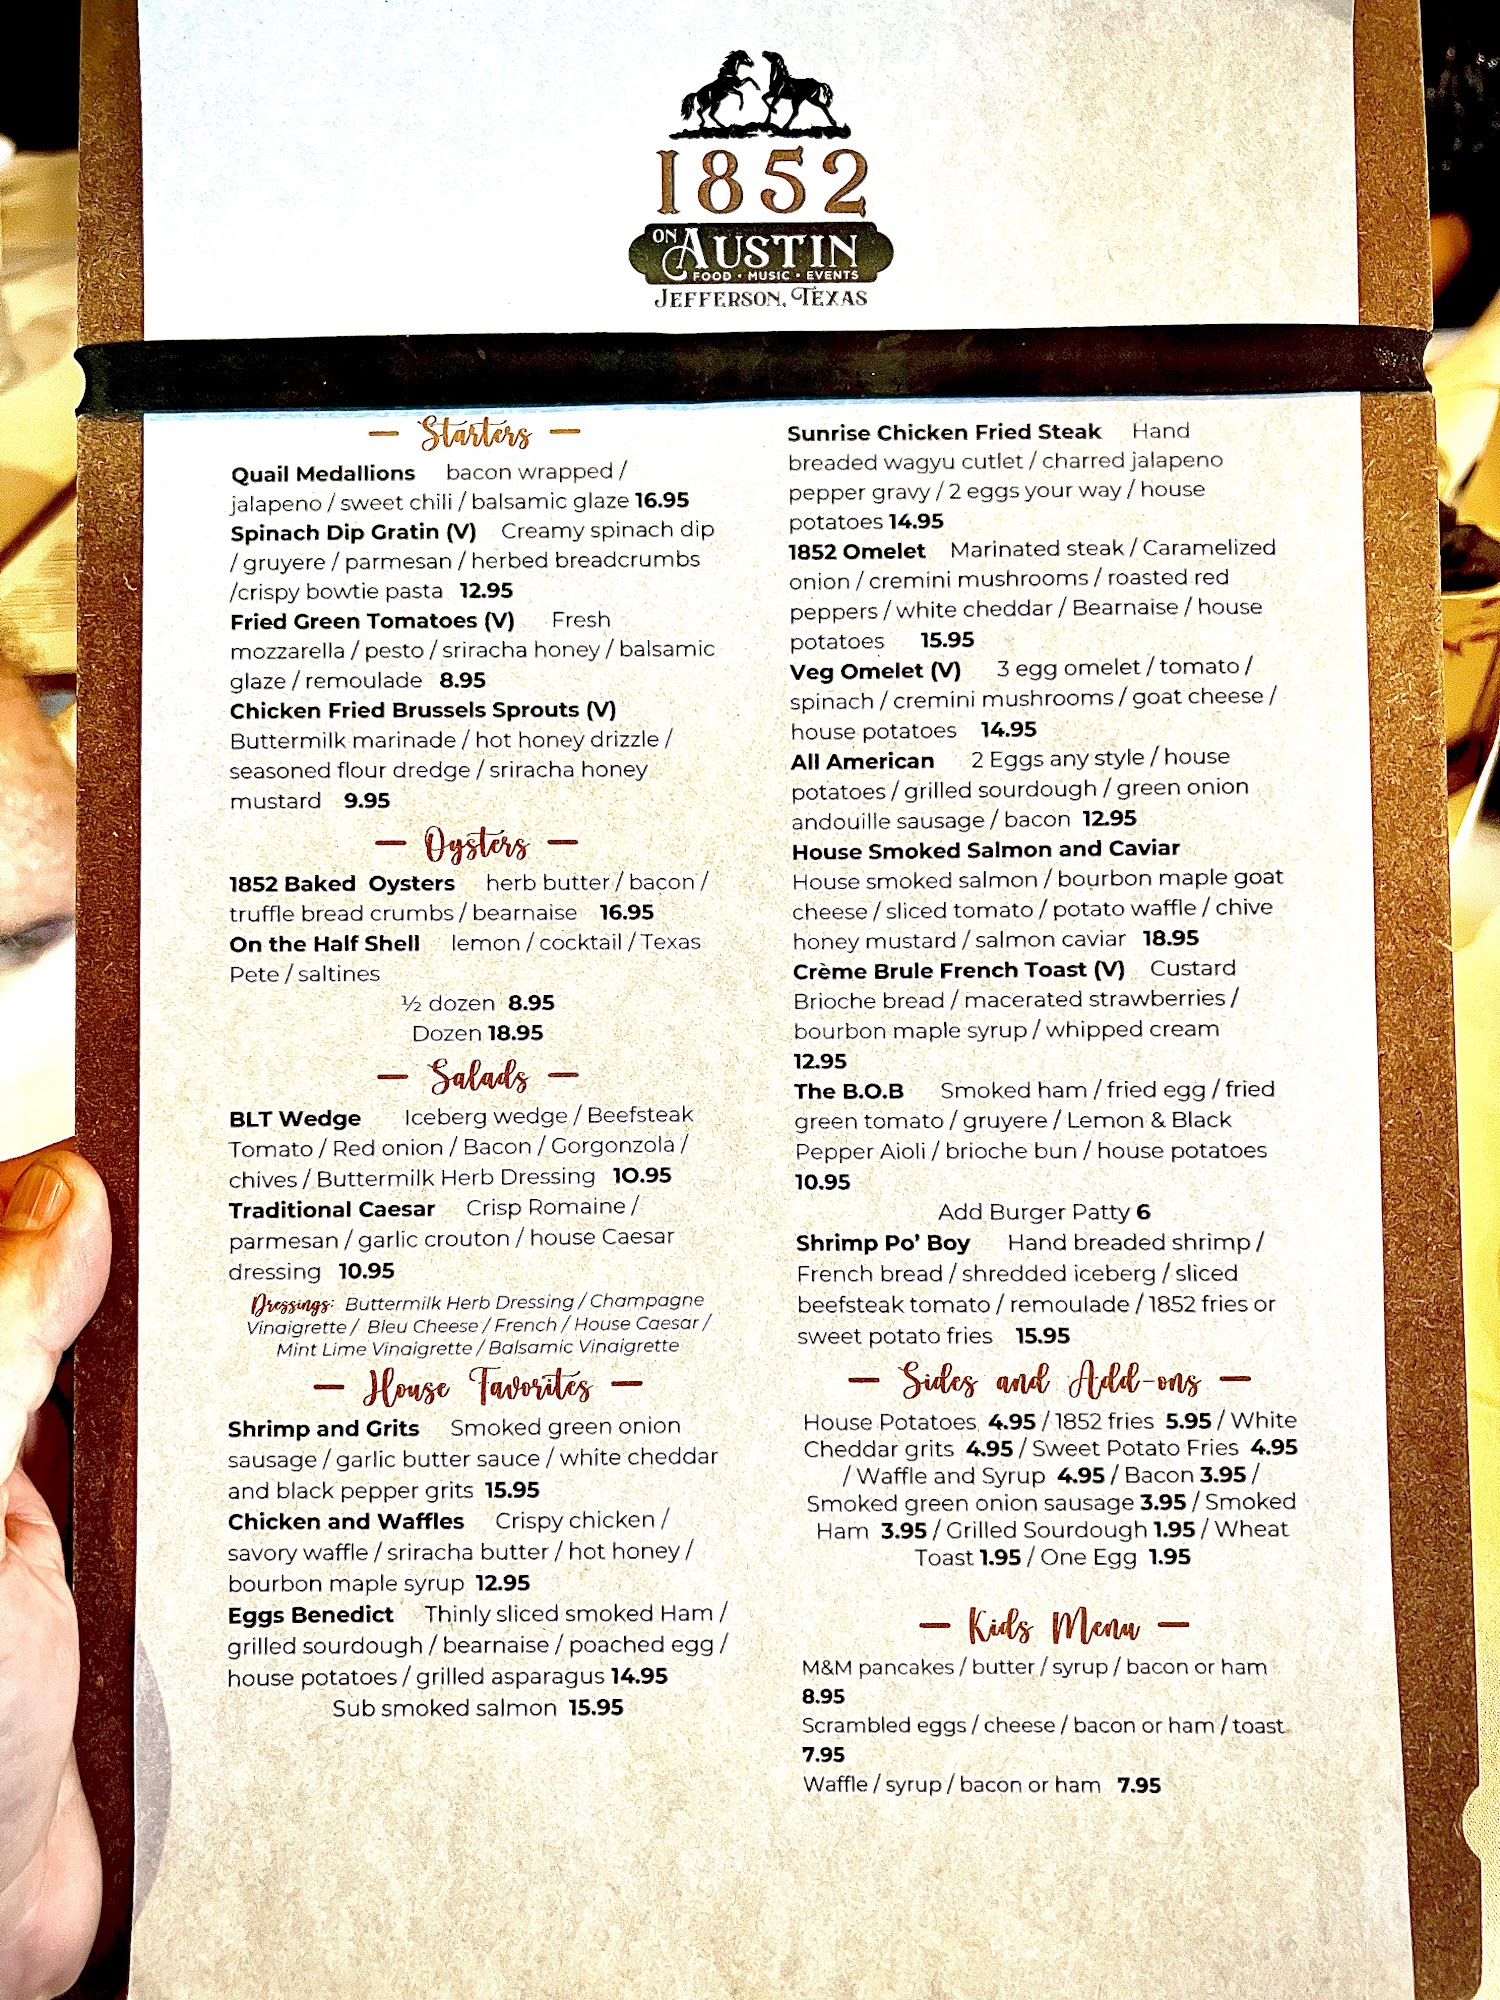 1852
ON AUSTIN
FOOD • MUSIC • EVENTS
JEFFERSON, TEXAS
— Starters —
Quail Medallions bacon wrapped /
jalapeno / sweet chili / balsamic glaze 16.95
Spinach Dip Gratin (V) Creamy spinach dip
/ gruyere / parmesan / herbed breadcrumbs
/crispy bowtie pasta 12.95
Fried Green Tomatoes (V) Fresh
mozzarella / pesto / sriracha honey / balsamic
glaze / remoulade 8.95
Chicken Fried Brussels Sprouts (V)
Buttermilk marinade / hot honey drizzle /
seasoned flour dredge / sriracha honey
mustard 9.95
— Oysters —
1852 Baked Oysters herb butter / bacon /
truffle bread crumbs / bearnaise 16.95
On the Half Shell lemon / cocktail / Texas
Pete / saltines
½ dozen 8.95
Dozen 18.95
— Salads —
BLT Wedge Iceberg wedge / Beefsteak
Tomato / Red onion / Bacon / Gorgonzola /
chives / Buttermilk Herb Dressing 10.95
Traditional Caesar Crisp Romaine /
parmesan / garlic crouton / house Caesar
dressing 10.95
Dressings: Buttermilk Herb Dressing / Champagne
Vinaigrette / Bleu Cheese / French / House Caesar /
Mint Lime Vinaigrette / Balsamic Vinaigrette
— House Favorites —
Shrimp and Grits Smoked green onion
sausage / garlic butter sauce / white cheddar
and black pepper grits 15.95
Chicken and Waffles Crispy chicken /
savory waffle / sriracha butter / hot honey /
bourbon maple syrup 12.95
Eggs Benedict Thinly sliced smoked Ham /
grilled sourdough / bearnaise / poached egg /
house potatoes / grilled asparagus 14.95
Sub smoked salmon 15.95
Sunrise Chicken Fried Steak Hand
breaded wagyu cutlet / charred jalapeno
pepper gravy / 2 eggs your way / house
potatoes 14.95
1852 Omelet Marinated steak / Caramelized
onion / cremini mushrooms / roasted red
peppers / white cheddar / Bearnaise / house
potatoes 15.95
Veg Omelet (V) 3 egg omelet / tomato /
spinach / cremini mushrooms / goat cheese /
house potatoes 14.95
All American 2 Eggs any style / house
potatoes / grilled sourdough / green onion
andouille sausage / bacon 12.95
House Smoked Salmon and Caviar
House smoked salmon / bourbon maple goat
cheese / sliced tomato / potato waffle / chive
honey mustard / salmon caviar 18.95
Crème Brule French Toast (V) Custard
Brioche bread / macerated strawberries /
bourbon maple syrup / whipped cream
12.95
The B.O.B Smoked ham / fried egg / fried
green tomato / gruyere / Lemon & Black
Pepper Aioli / brioche bun / house potatoes
10.95
Add Burger Patty 6
Shrimp Po' Boy Hand breaded shrimp /
French bread / shredded iceberg / sliced
beefsteak tomato / remoulade / 1852 fries or
sweet potato fries 15.95
— Sides and Add-ons —
House Potatoes 4.95 / 1852 fries 5.95 / White
Cheddar grits 4.95 / Sweet Potato Fries 4.95
/ Waffle and Syrup 4.95 / Bacon 3.95 /
Smoked green onion sausage 3.95 / Smoked
Ham 3.95 / Grilled Sourdough 1.95 / Wheat
Toast 1.95 / One Egg 1.95
— Kids Menu —
M&M pancakes / butter / syrup / bacon or ham
8.95
Scrambled eggs / cheese / bacon or ham / toast
7.95
Waffle / syrup / bacon or ham 7.95